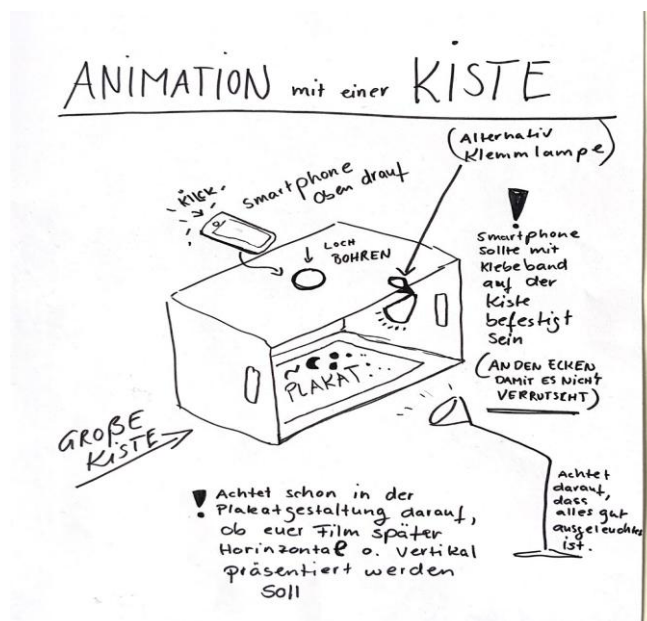 ANIMATION mit einer KISTE
(Alternativ
Klemmlampe)
KLICK.
smartphone
oben drauf
LOCH
BOHREN
!
smartphone
sollte mit
Klebeband
auf der
Kiste
befestigt
sein
(AN DEN ECKEN
DAMIT ES NICHT
VERRUTSCHT)
PLAKAT
GROßE
KISTE
! Achtet schon in der
Plakatgestaltung darauf,
ob euer Film später
Horinzontal o. Vertikal
präsentiert werden
soll
Achtet
darauf,
dass
alles gut
ausgeleuchtet
ist.